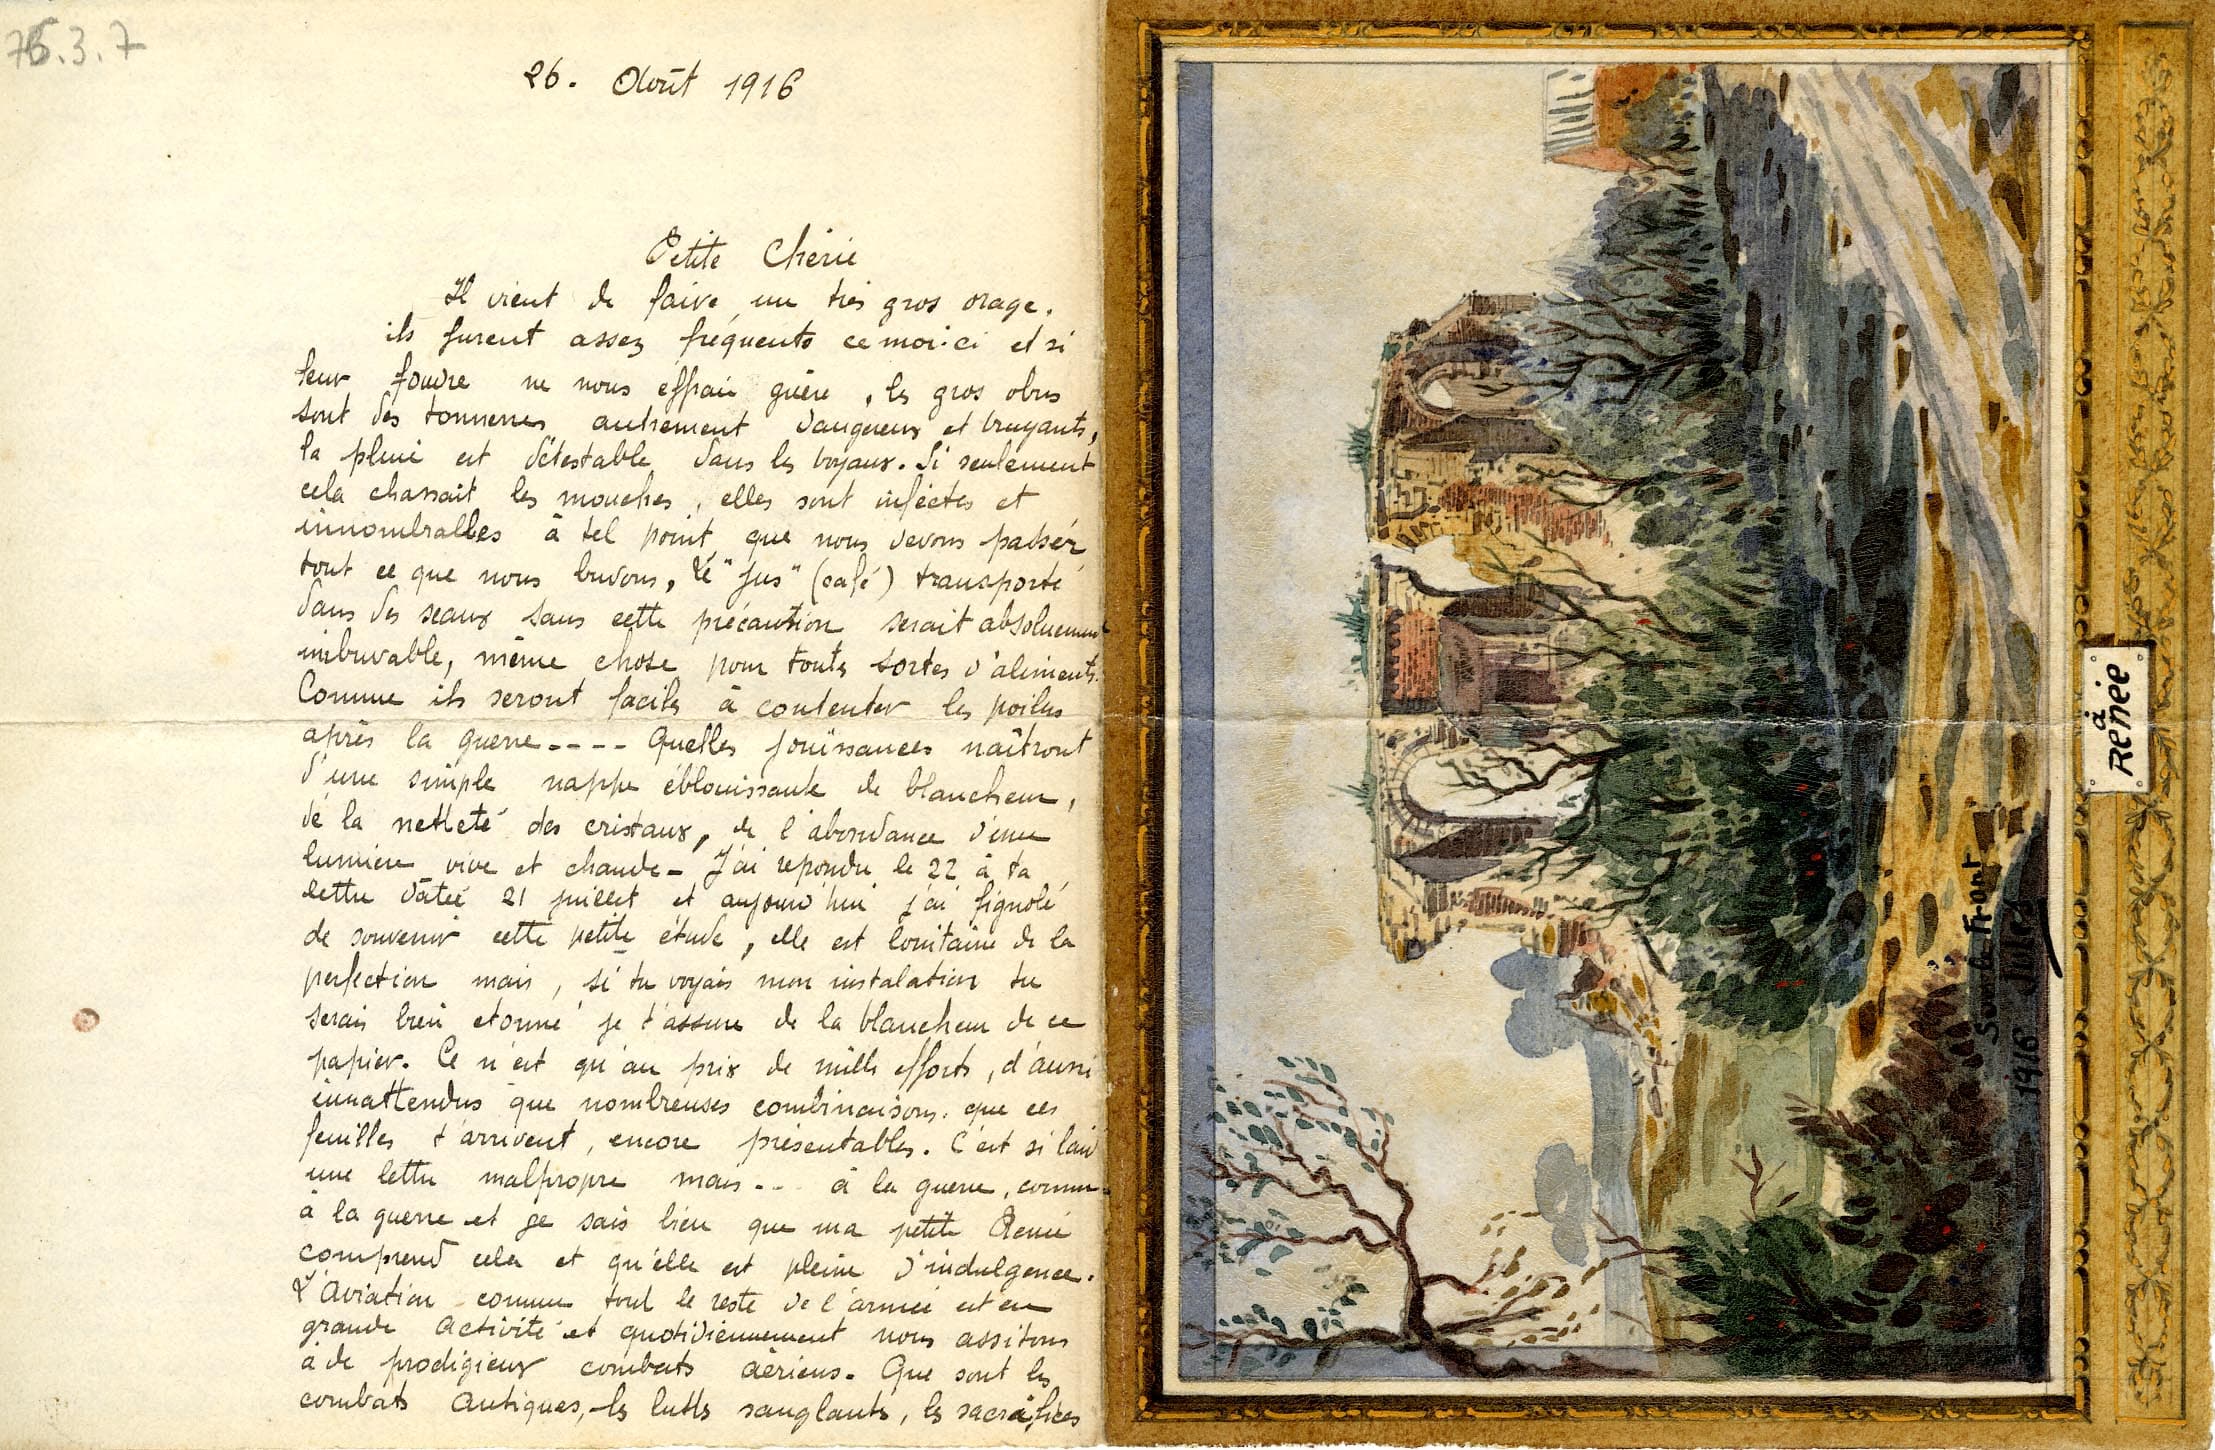 75.3.7
26. Août 1916
Petite Chérie
Il vient de faire un très gros orage.
ils furent assez fréquents ce mois-ci et si
leur foudre ne nous effraie guère, les gros obus
sont des tonnerres autrement dangereux et bruyants,
la pluie est détestable dans les boyaux. Si seulement
cela chassait les mouches, elles sont infectes et
innombrables à tel point que nous devons passer
tout ce que nous buvons, Le "jus" (café) transporté
dans des seaux sans cette précaution serait absolument
imbuvable, même chose pour toutes sortes d'aliments.
Comme ils seront faciles à contenter les poilus
après la guerre---- Quelles jouissances naîtront
d'une simple nappe éblouissante de blancheur,
de la netteté des cristaux, de l'abondance d'une
lumière vive et chaude - J'ai repondu le 22 à ta
lettre datée 21 juillet et aujourd'hui j'ai fignolé
de souvenir cette petite étude, elle est lointaine de la
perfection mais, si tu voyais mon instalation tu
serais bien etonné je t'assure de la blancheur de ce
papier. Ce n'est qu'au prix de mille efforts, d'aussi
innattendus que nombreuses combinaisons. que ces
feuilles t'arrivent, encore présentables. C'est si laid
une lettre malpropre mais... à la guerre, comme
à la guerre et je sais bien que ma petite Renée
comprend cela et qu'elle est pleine d'indulgence.
L'Aviation comme tout le reste de l'armée est en
grande activité et quotidiennement nous assitons
à de prodigieux combats aériens. Que sont les
combats Antiques, les luttes sanglantes, les sacrifices
à
Renée
Sur le Front
1916 Jules